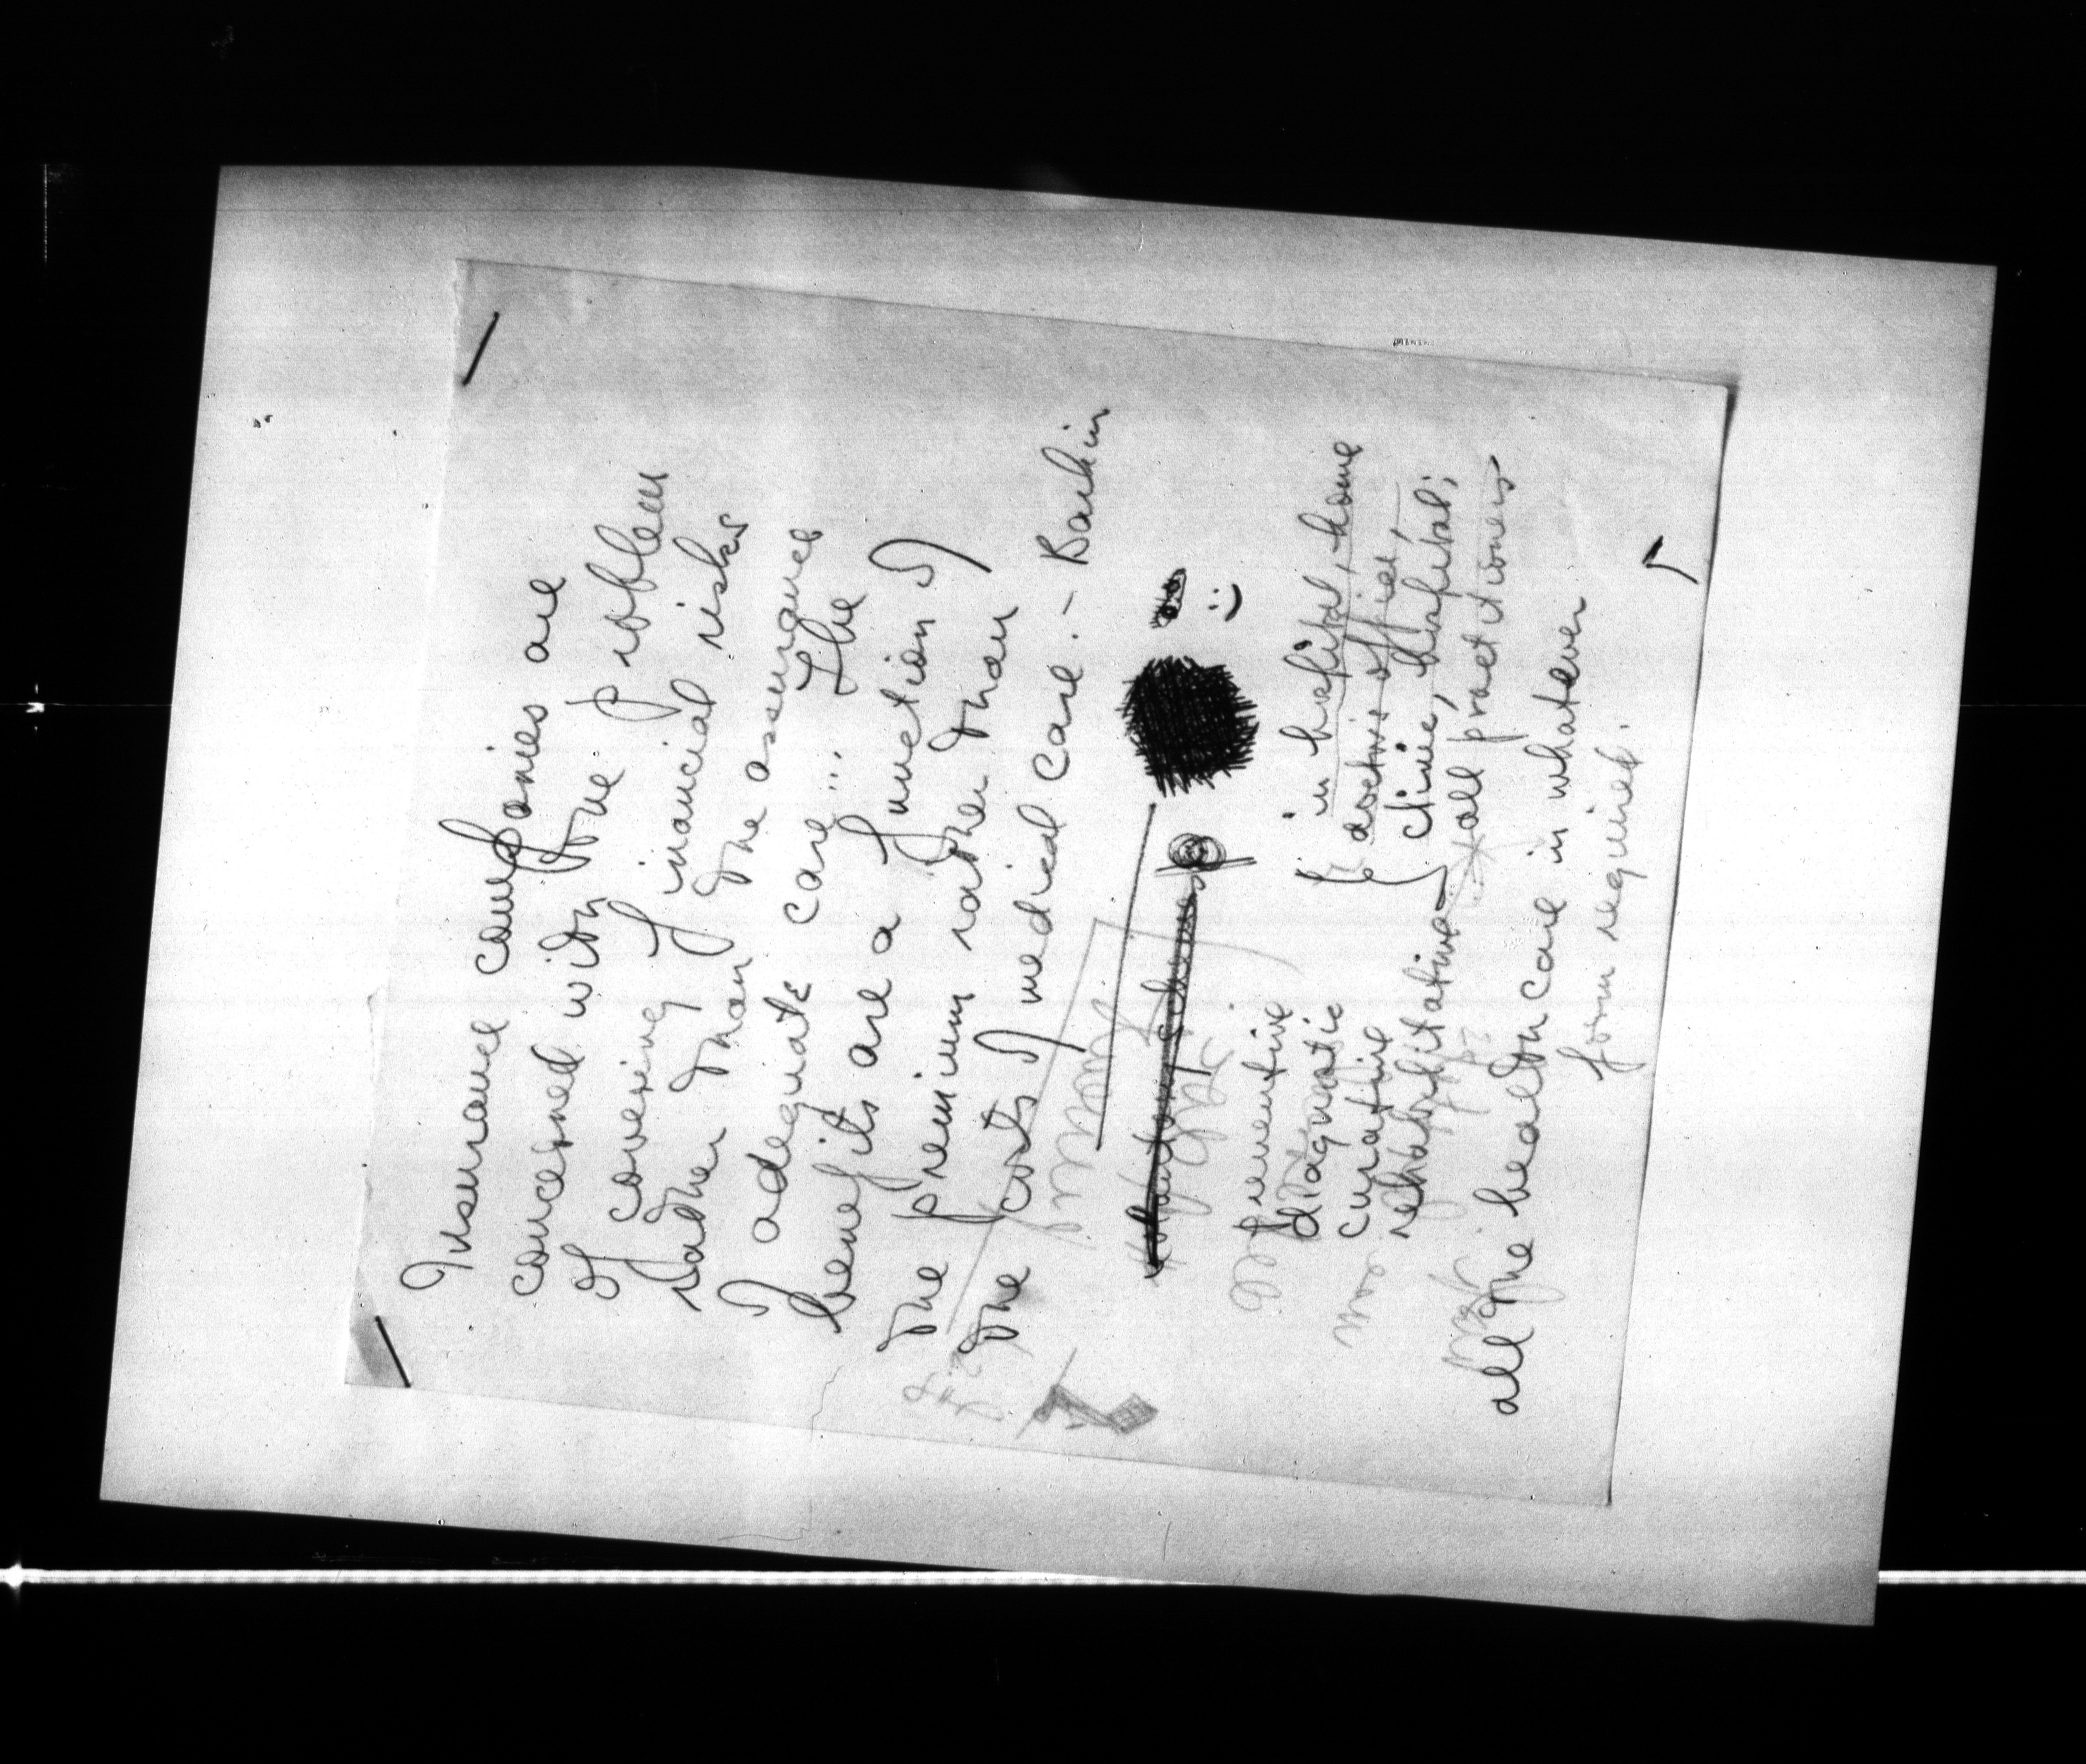 Insurance companies are
concerned with the problem
of covering financial risks
rather than the assurance
of adequate care... The
benefits are a function of
the premium rather than
the costs of medical care. - Baehin
preventive
diagnostic
curative
rehabilitative
in hospital, home
doctors office,
clinic, hospital;
all practitioners
all the health care in whatever
form required.